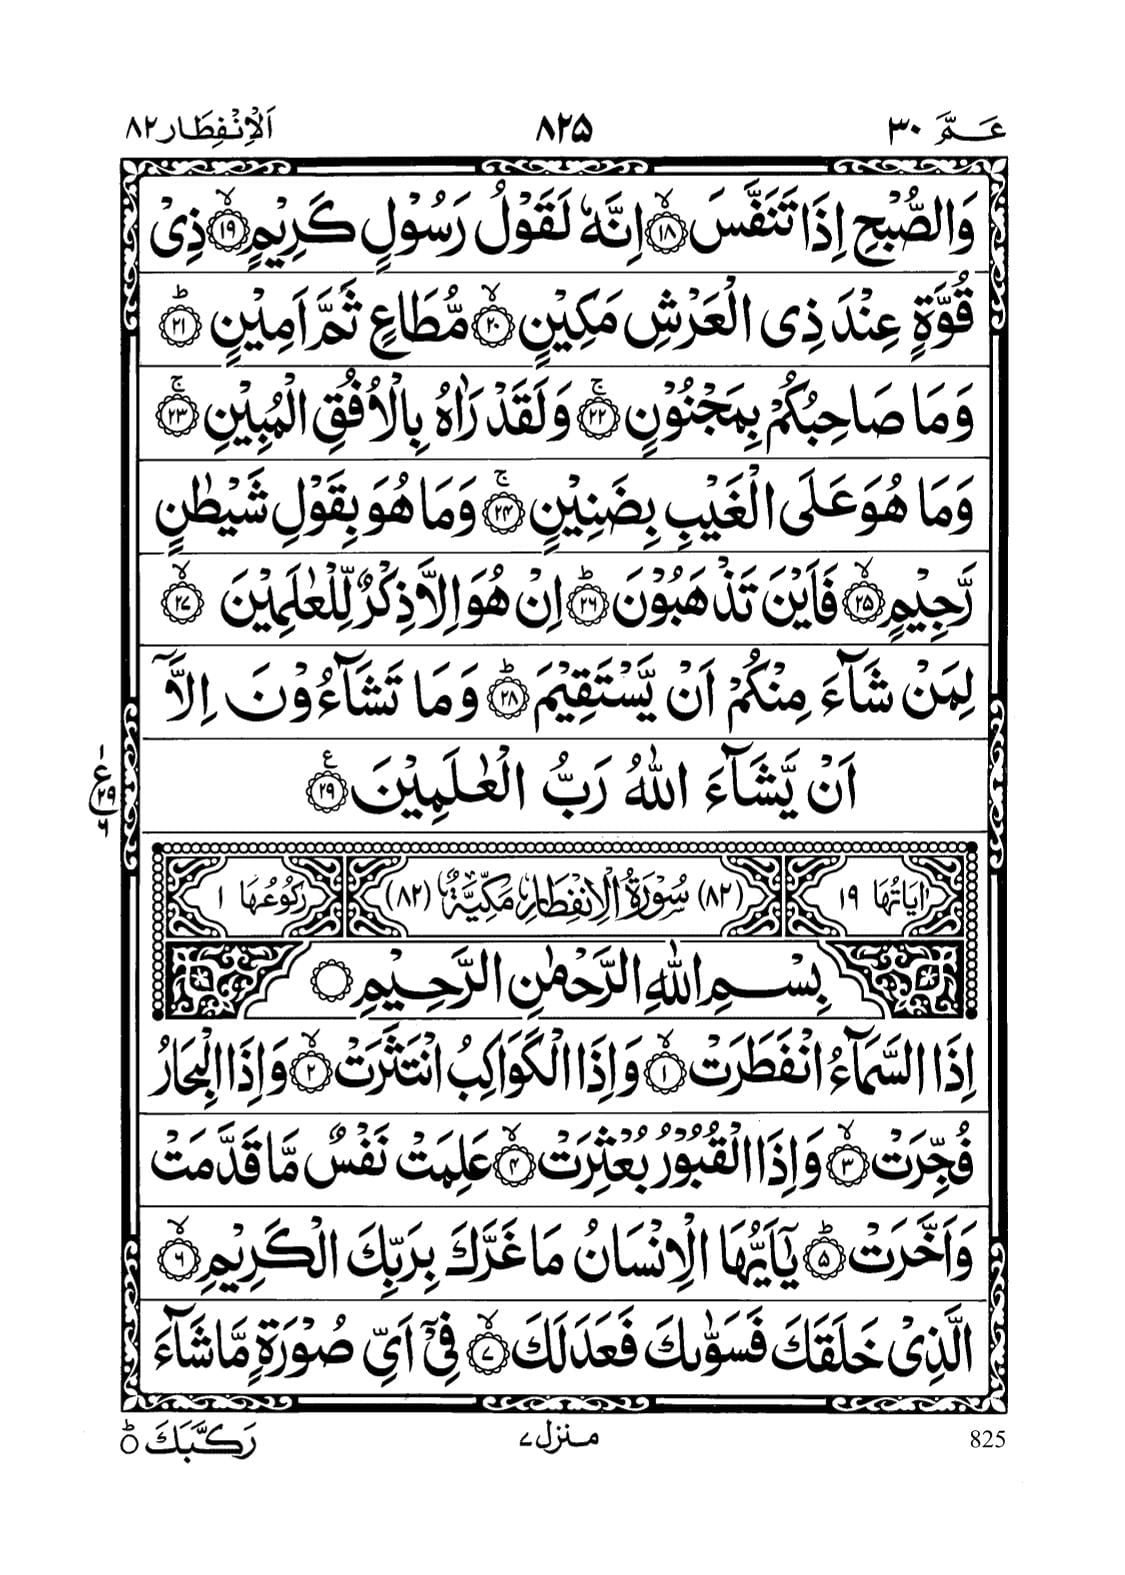 عَـمَّ ٣٠ ٨٢۵ اَلْاِنْفِطَار ٨٢
وَالصُّبْحِ اِذَا تَنَفَّسَ ۙ‏﴿۱۸﴾ اِنَّهٗ لَقَوْلُ رَسُوْلٍ كَرِيْمٍ ۙ‏﴿۱۹﴾ ذِىْ
قُوَّةٍ عِنْدَ ذِى الْعَرْشِ مَكِيْنٍ ۙ‏﴿۲۰﴾ مُّطَاعٍ ثَمَّ اَمِيْنٍ ؕ‏﴿۲۱﴾
وَمَا صَاحِبُكُمْ بِمَجْنُوْنٍ‌ ۚ‏﴿۲۲﴾ وَلَقَدْ رَاٰهُ بِالْاُفُقِ الْمُبِيْنِ‌ ۚ‏﴿۲۳﴾
وَمَا هُوَ عَلَى الْغَيْبِ بِضَنِيْنٍ‌ ۚ‏﴿۲۴﴾ وَمَا هُوَ بِقَوْلِ شَيْطٰنٍ
رَّجِيْمٍ ۙ‏﴿۲۵﴾ فَاَيْنَ تَذْهَبُوْنَ ؕ‏﴿۲۶﴾ اِنْ هُوَ اِلَّا ذِكْرٌ لِّلْعٰلَمِيْنَ ۙ‏﴿۲۷﴾
لِمَنْ شَآءَ مِنْكُمْ اَنْ يَّسْتَقِيْمَ ؕ‏﴿۲۸﴾ وَمَا تَشَآءُوْنَ اِلَّاۤ
اَنْ يَّشَآءَ اللّٰهُ رَبُّ الْعٰلَمِيْنَ ﴿۲۹﴾ ع
ع ١ ٢٩ ٦
اٰيَاتُهَا ١٩ (٨٢) سُوْرَةُ الْاِنْفِطَارِ مَكِّيَّةٌ (٨٢) رُكُوْعُهَا ١
بِسْمِ اللّٰهِ الرَّحْمٰنِ الرَّحِيْمِ ○
اِذَا السَّمَآءُ انْفَطَرَتْ ۙ‏﴿۱﴾ وَاِذَا الْكَوَاكِبُ انْتَثَرَتْ ۙ‏﴿۲﴾ وَاِذَا الْبِحَارُ
فُجِّرَتْ ۙ‏﴿۳﴾ وَاِذَا الْقُبُوْرُ بُعْثِرَتْ ۙ‏﴿۴﴾ عَلِمَتْ نَفْسٌ مَّا قَدَّمَتْ
وَاَخَّرَتْ ؕ‏﴿۵﴾ يٰۤاَيُّهَا الْاِنْسَانُ مَا غَرَّكَ بِرَبِّكَ الْكَرِيْمِ ۙ‏﴿۶﴾
الَّذِىْ خَلَقَكَ فَسَوّٰٮكَ فَعَدَلَكَ ۙ‏﴿۷﴾ فِىْۤ اَىِّ صُوْرَةٍ مَّا شَآءَ
825 مـنزل ٧ رَكَّبَكَ ؕ○